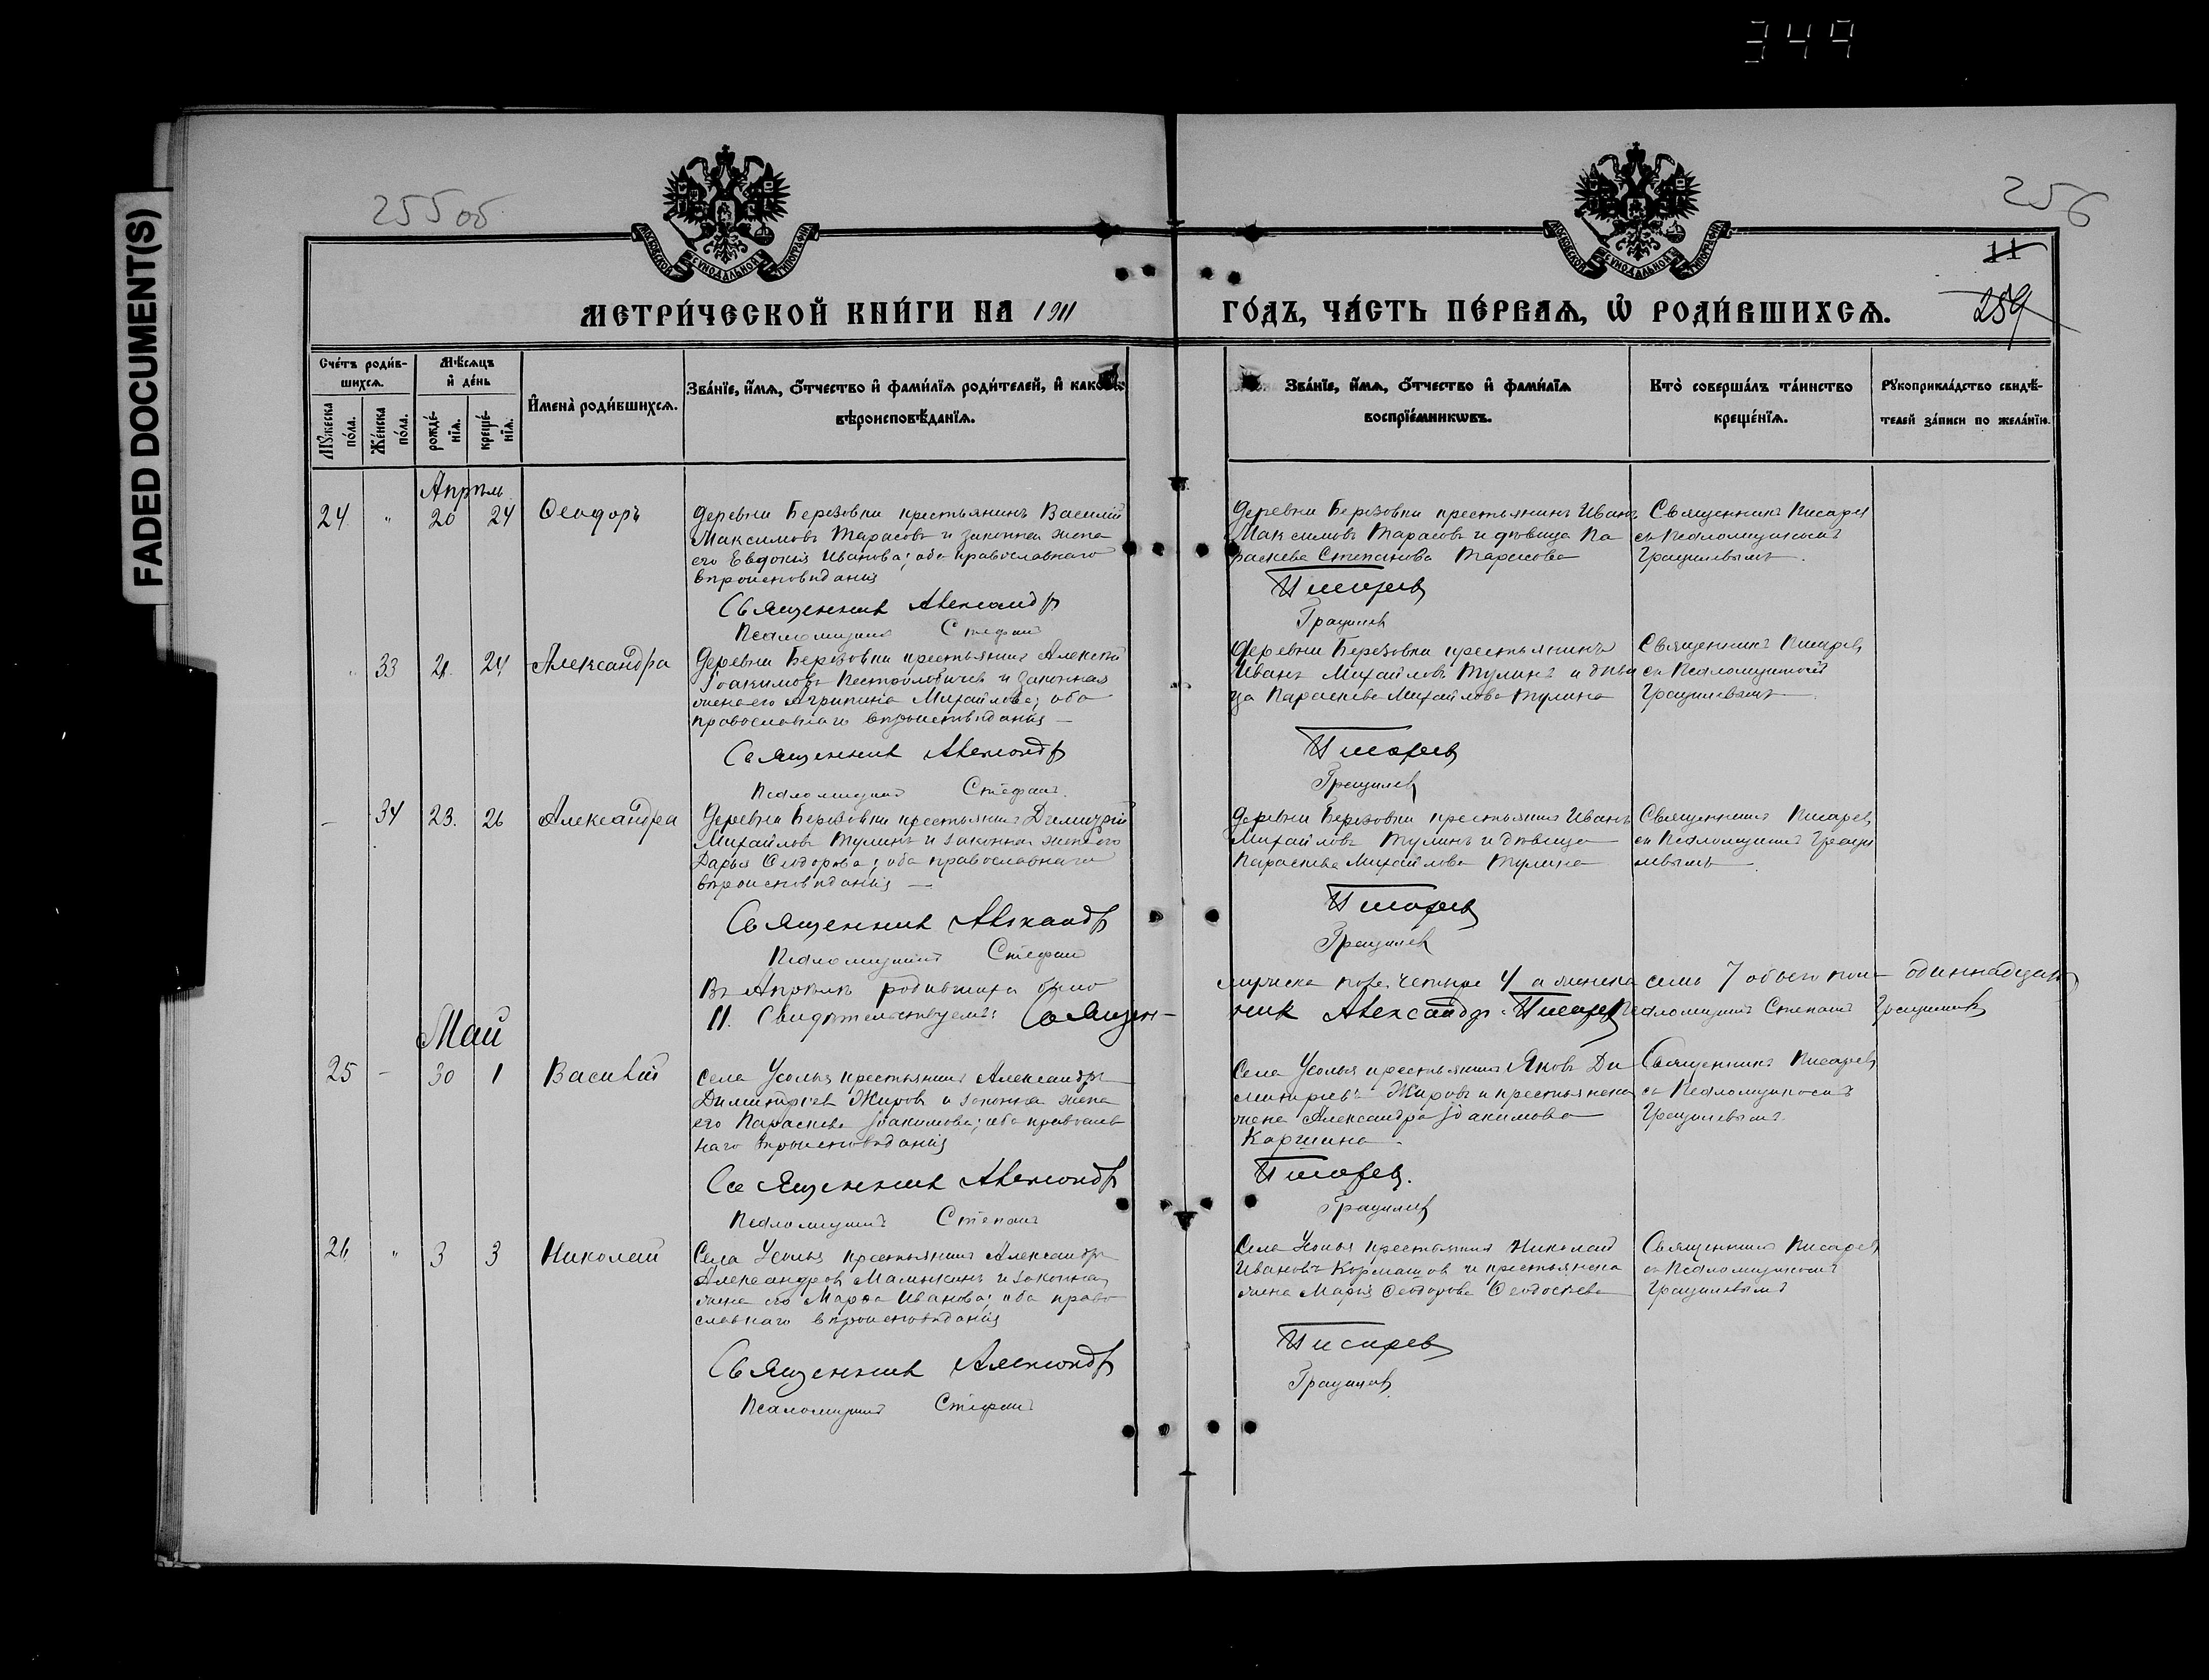 349
FADED DOCUMENT(S)
255 об
256
11
259
МОСКОВСКОЙ СУНОДАЛЬНОЙ ТИПОГРАФІИ
МОСКОВСКОЙ СУНОДАЛЬНОЙ ТИПОГРАФІИ
МЕТРИ́ЧЕСКОЙ КНИ́ГИ НА 1911
ГО́ДЪ, ЧА́СТЬ ПЕ́РВАѦ, Ѽ РОДИ́ВШИХСѦ.
Сче́тъ роди́в-
шихсѧ.
Мꙋ́жеска по́ла.
Же́нска по́ла.
Мѣ́сѧцъ
и҆ де́нь
рожде́-
нїѧ.
креще́-
нїѧ.
И҆мена̀ роди́вшихсѧ.
Зва́нїе, и҆́мѧ, ѻ҆́тчество и҆ фами́лїѧ роди́телей, и҆ како́гѡ
вѣроисповѣ́данїѧ.
Зва́нїе, и҆́мѧ, ѻ҆́тчество и҆ фами́лїѧ
воспрїе́мникѡвъ.
Кто̀ соверша́лъ та́инство
креще́нїѧ.
Рꙋкоприкла́дство свидѣ́-
телей за́писи по жела́нїю.
Апрѣль
24 " 20 24 Ѳеодоръ
Деревни Березовки крестьянинъ Василій
Максимовъ Тарасовъ и законная жена
его Евдокія Иванова; оба православнаго
вѣроисповѣданія
Священник Александр
Псаломщикъ Стефанъ
Деревни Березовки крестьянинъ Иванъ
Максимовъ Тарасовъ и дѣвица Па
раскева Степанова Тарасова
Писарев
Грацилев
Священникъ Писарев
съ Псаломщикомъ
Грацилевымъ.
" 33 21. 24 Александра
Деревни Березовки крестьянинъ Алексей
Іоакимовъ Пестройлобичев и законная
жена его Агрипина Михайлова; оба
православнаго вѣроисповѣданія —
Священник Александр
Псаломщикъ Стефанъ.
Деревни Березовки крестьянинъ
Иванъ Михайловъ Тулинъ и дѣви
ца Параскева Михайлова Тулина
Писарев
Грацилев
Священникъ Писарев
съ Псаломщикомъ
Грацилевымъ.
— 34 23. 26 Александра
Деревни Березовки крестьянинъ Димитрій
Михайловъ Тулинъ и законная жена его
Дарья Ѳеодорова; оба православнаго
вѣроисповѣданія —
Священник Александр
Псаломщикъ Стефанъ
Деревни Березовки крестьянинъ Иванъ
Михайловъ Тулинъ и дѣвица
Параскева Михайлова Тулина
Писарев
Грацилев
Священникъ Писарев
съ Псаломщикомъ Граци
левымъ.
Въ Апрѣлѣ родившихся было
мужска пола четыре 4 а женска семь 7 обоего пола одиннадцать
11. Свидѣтельствуемъ: Священ-
ник Александр Писарев Псаломщикъ Степанъ Грацилев
Май
25 — 30 1 Василій
Села Усолья крестьянинъ Александръ
Димитріев Жировъ и законная жена
его Параскева Іоакимова; оба православ
наго вѣроисповѣданія
Священник Александр
Псаломщикъ Степанъ
Села Усолья крестьянинъ Яковъ Ди
митріевъ Жировъ и крестьянская
жена Александра Іоакимова
Каргина.
Писарев.
Грацилев
Священникъ Писарев
съ Псаломщикомъ
Грацилевымъ.
26 " 3 3 Николай
Села Усолья крестьянинъ Александръ
Александров Малыкинъ и законная
жена его Марѳа Иванова; оба право
славнаго вѣроисповѣданія
Священник Александр
Псаломщикъ Стефанъ
Села Усолья крестьянинъ Николай
Ивановъ Кормашов и крестьянска
жена Марія Ѳеодорова Ѳеодосіева
Писарев
Грацилев
Священникъ Писарев
съ Псаломщикомъ
Грацилевымъ